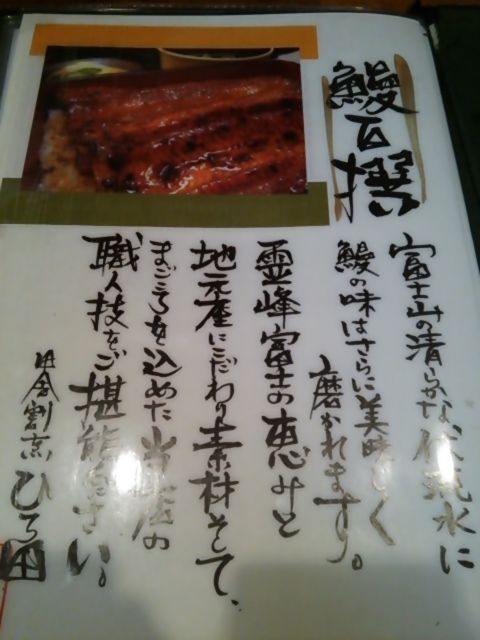 鰻百撰
富士山の清らかな伏流水に
鰻の味はさらに美味しく
磨かれます。
霊峰富士の恵みと
地元産にこだわり素材そして、
まごころを込めた当店の
職人技をご堪能ください。
田舎割烹ひろ田